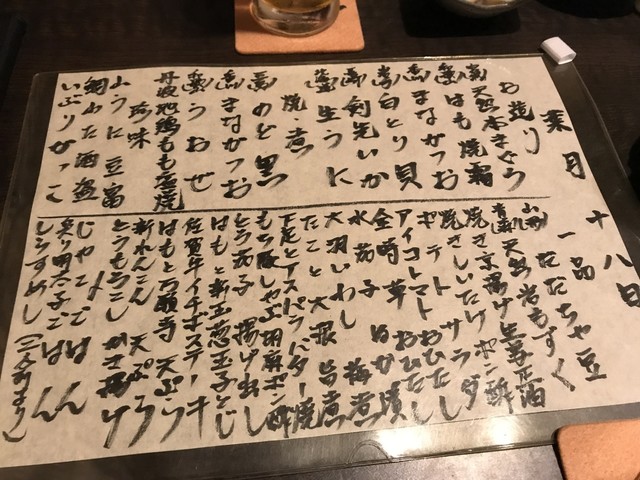 葉月 十八日
お造り
天然本まぐろ
はも焼霜
まながつお
白とり貝
剣先いか
生うに
焼・煮
のど黒
まながつお
うおぜ
丹波地鶏もも塩焼
珍味
山うに豆富
鯛わた酒盗
いぶりがっこ
一品
山形 だだちゃ豆
天然岩もずく
焼き京揚げ生姜正油
焼きしいたけ ポン酢
ポテトサラダ
アイコトマトおひたし
金時草おひたし
水茄子ぬか漬
大羽いわし梅煮
たこと大根旨煮
下足とアスパラバター焼
もち豚しゃぶ胡麻ポン酢
とろ茄子揚げ出し
はもと新玉葱玉子とじ
佐賀牛イチボステーキ
はもと万願寺天ぷら
新れんこん天ぷら
とうもろこしかき揚げ
〆
じゃこごはん
炙り明太子ごはん
しらすめし